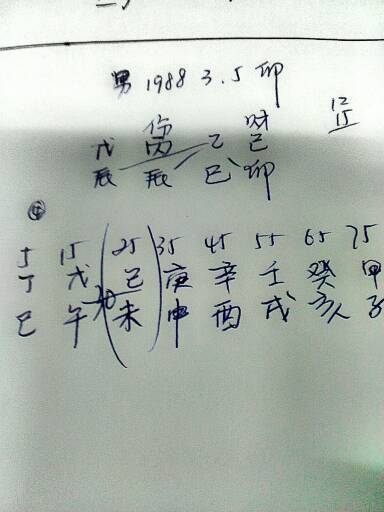 男 1988 3.5 卯
12
15
伤 财
戊 丙 乙 己
辰 辰 巳 卯
④
5 15 25 35 45 55 65 75
丁 戊 己 庚 辛 壬 癸 甲
巳 午 未 申 酉 戌 亥 子